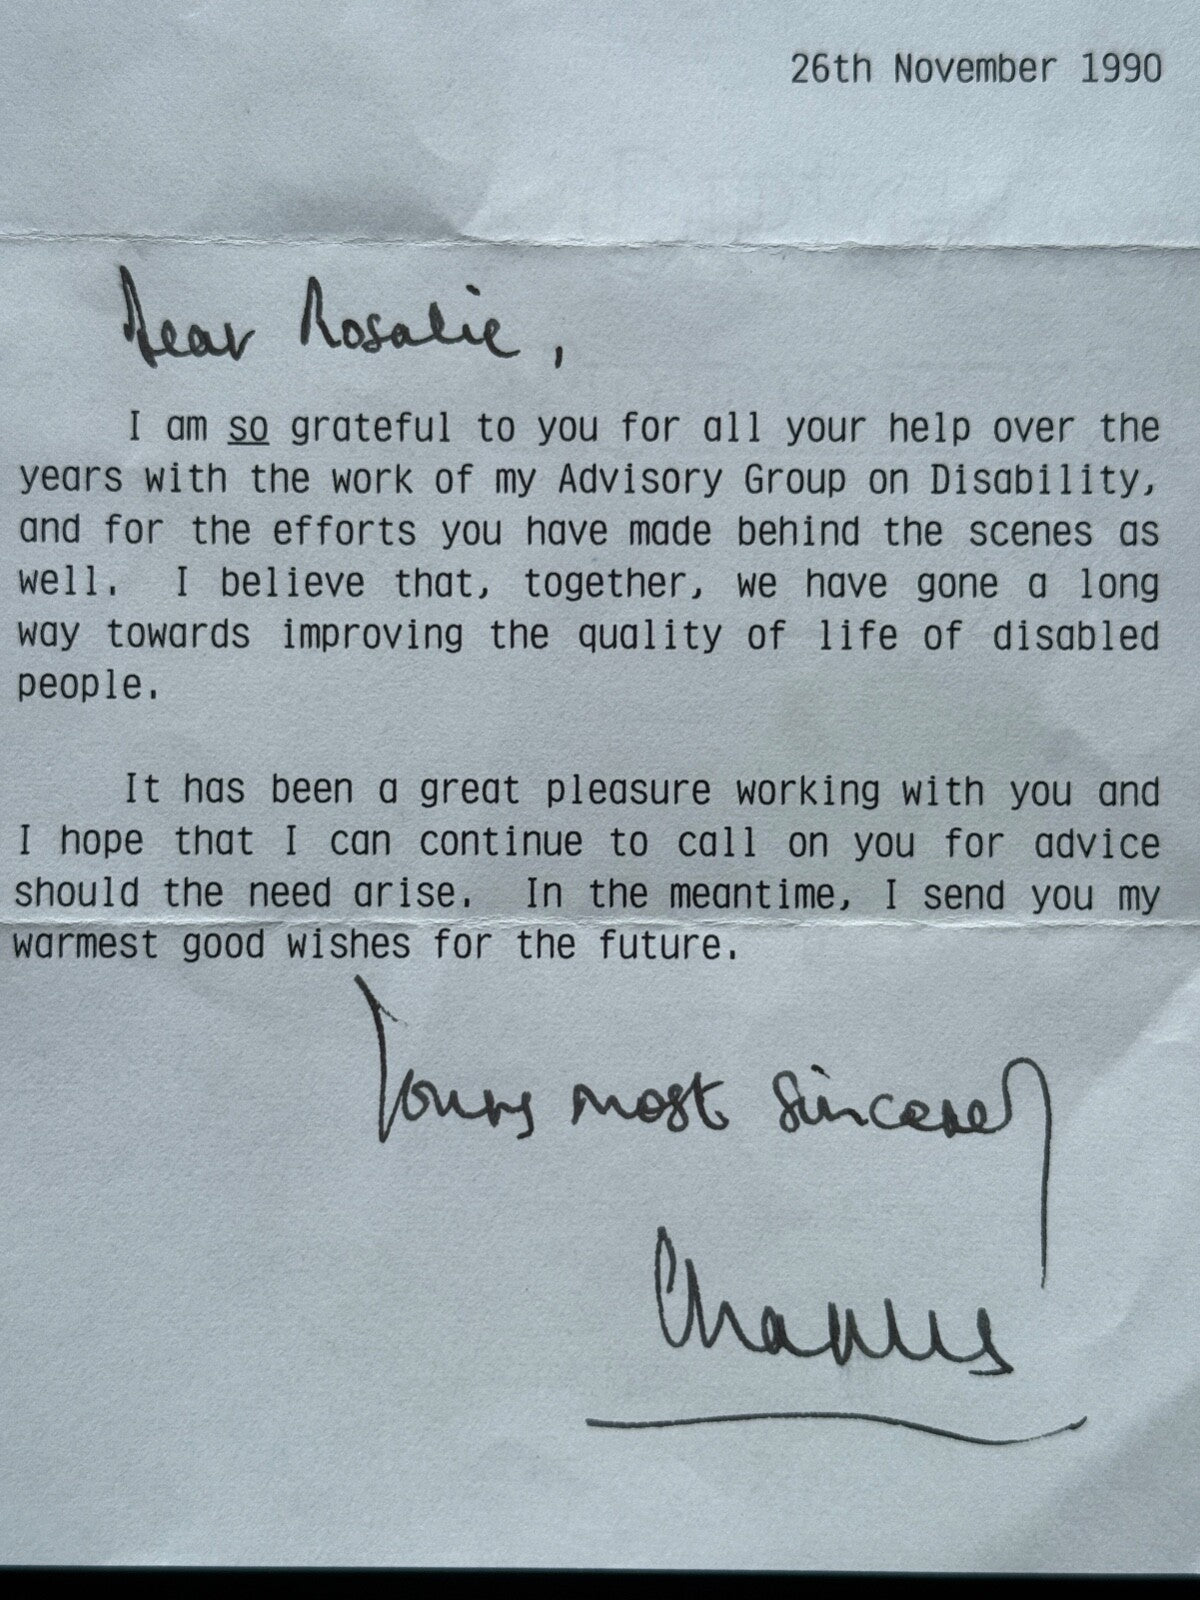 26th November 1990
Dear Rosalie,
I am so grateful to you for all your help over the
years with the work of my Advisory Group on Disability,
and for the efforts you have made behind the scenes as
well. I believe that, together, we have gone a long
way towards improving the quality of life of disabled
people.
It has been a great pleasure working with you and
I hope that I can continue to call on you for advice
should the need arise. In the meantime, I send you my
warmest good wishes for the future.
Yours most sincerely
Charles